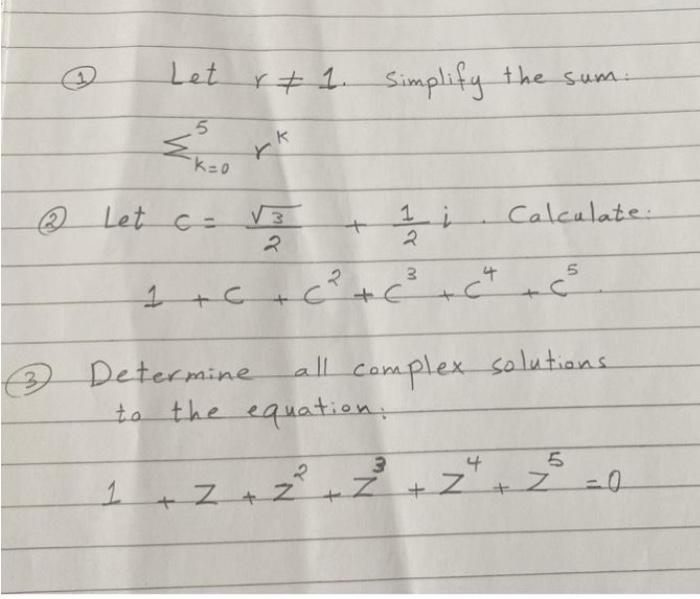 ① Let r ≠ 1. Simplify the sum:
∑_{k=0}^{5} r^k
② Let c = √3/2 + 1/2 i. Calculate:
1 + c + c² + c³ + c⁴ + c⁵.
③ Determine all complex solutions
to the equation:
1 + z + z² + z³ + z⁴ + z⁵ = 0